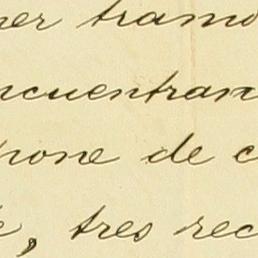 ner tramo
ncuentran
pone de c
, tres rec